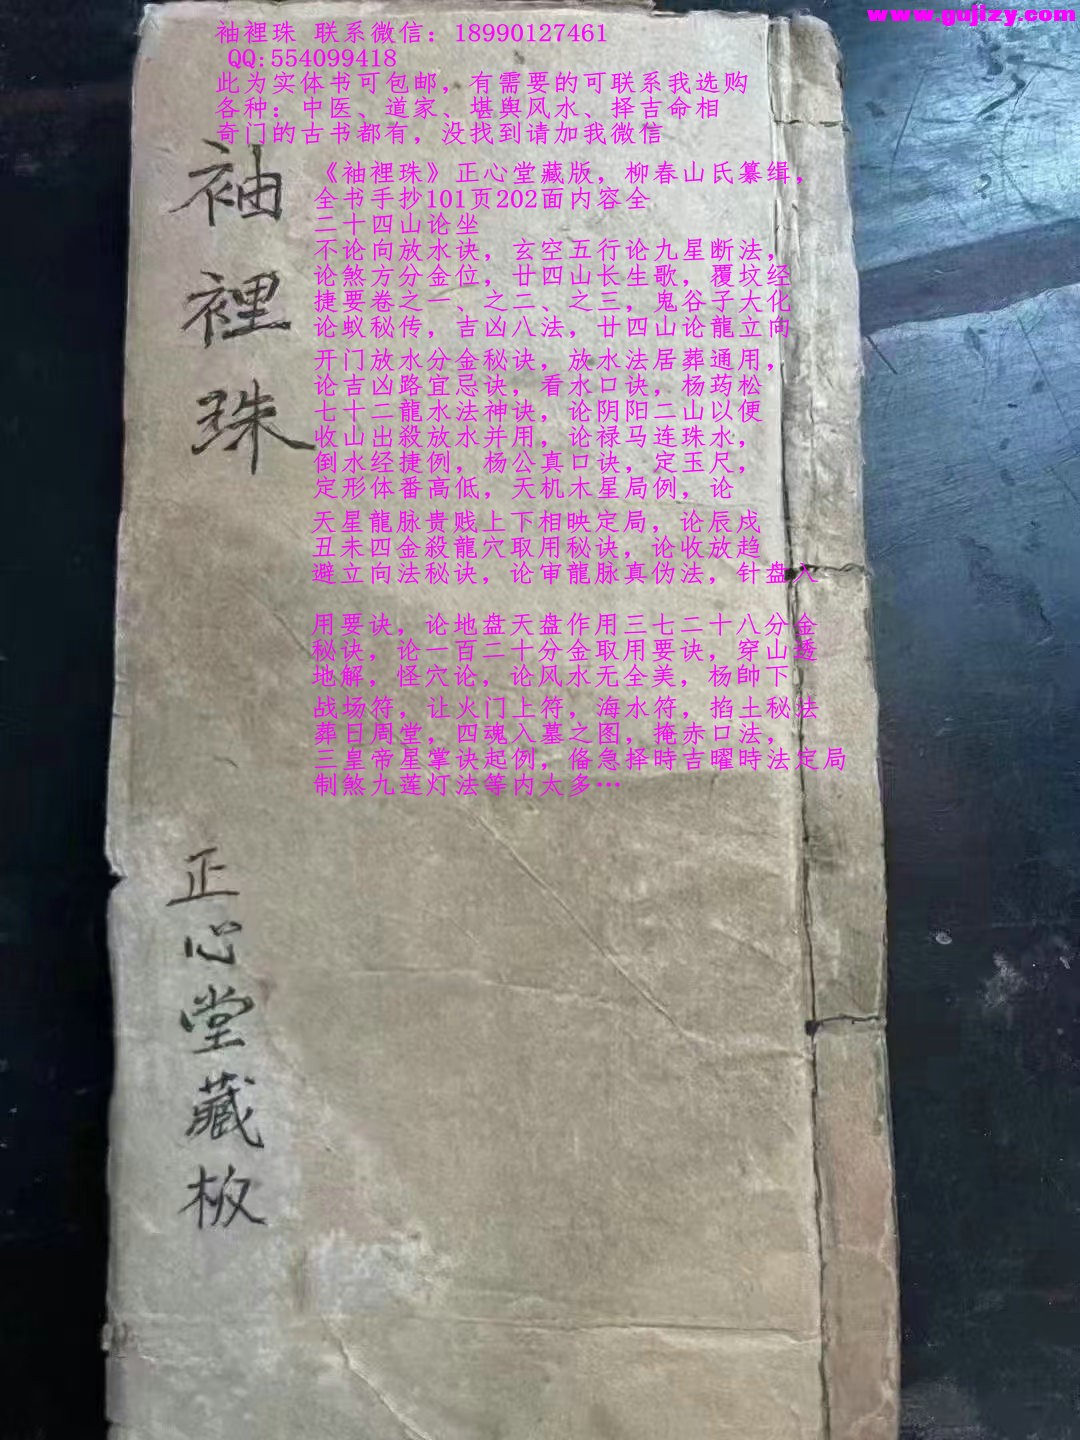 www.gujizy.com
袖裡珠 联系微信：18990127461
QQ:554099418
此为实体书可包邮，有需要的可联系我选购
各种：中医、道家、堪舆风水、择吉命相
奇门的古书都有，没找到请加我微信
《袖裡珠》正心堂藏版，柳春山氏纂缉，
全书手抄101页202面内容全
二十四山论坐
不论向放水诀，玄空五行论九星断法，
论煞方分金位，廿四山长生歌，覆坟经
捷要卷之一、之二、之三，鬼谷子大化
论蚁秘传，吉凶八法，廿四山论龍立向
开门放水分金秘诀，放水法居葬通用，
论吉凶路宜忌诀，看水口诀，杨药松
七十二龍水法神诀，论阴阳二山以便
收山出殺放水并用，论禄马连珠水，
倒水经捷例，杨公真口诀，定玉尺，
定形体番高低，天机木星局例，论
天星龍脉贵贱上下相映定局，论辰戍
丑未四金殺龍穴取用秘诀，论收放趋
避立向法秘诀，论审龍脉真伪法，针盘入
用要诀，论地盘天盘作用三七二十八分金
秘诀，论一百二十分金取用要诀，穿山透
地解，怪穴论，论风水无全美，杨帥下
战场符，让火门上符，海水符，掐土秘法
葬日周堂，四魂入墓之图，掩赤口法，
三皇帝星掌诀起例，俻急择時吉曜時法定局
制煞九莲灯法等内太多…
袖裡珠
正心堂藏板